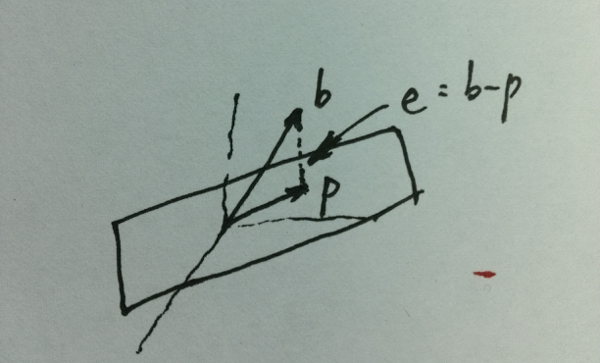 b
e = b-p
p